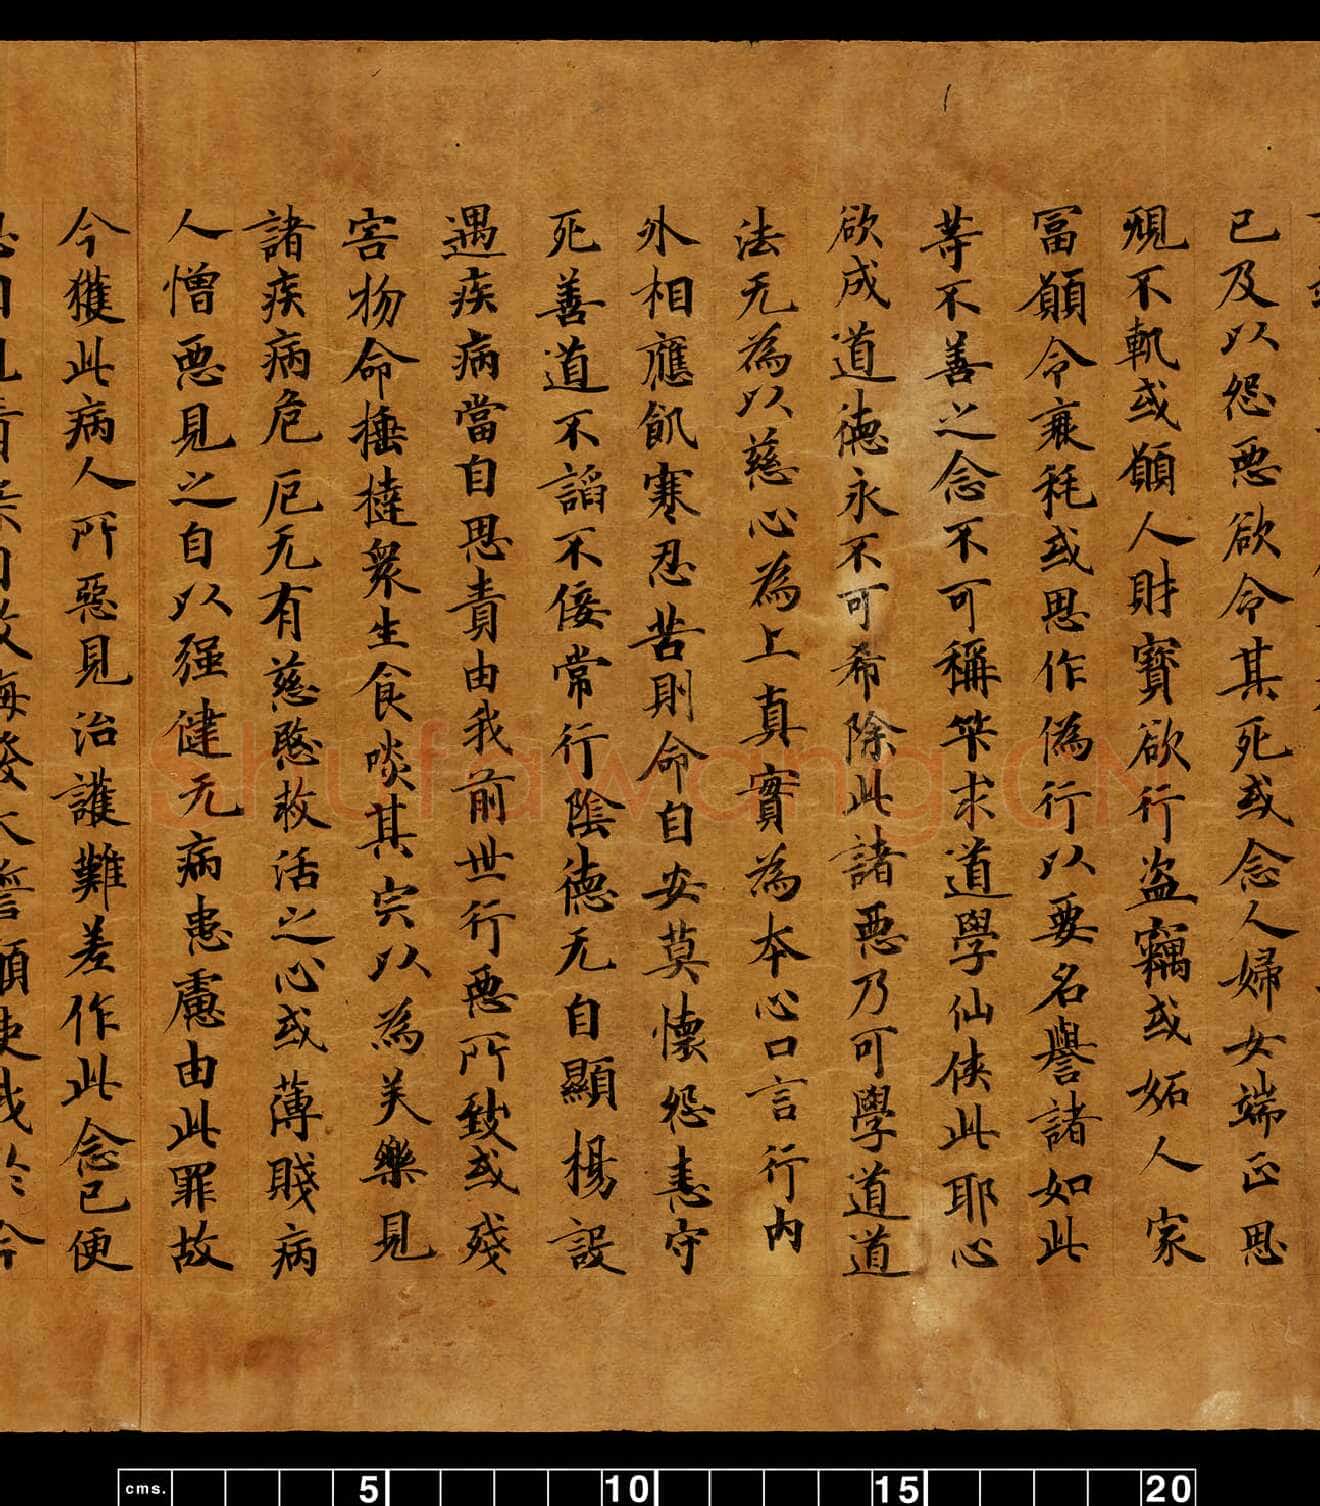 已及以怨恶欲令其死或念人婦女端正思
覬不軌或願人財寶欲行盗竊或妬人家
冨願令衰秏或思作偽行以要名譽諸如此
等不善之念不可稱筭求道學仙侠此耶心
欲成道德永不可希除此諸惡乃可學道道
法无為以慈心為上真實為本心口言行内
外相應飢寒忍苦則命自安莫懷怨恚守
死善道不謟不佞常行陰德无自顯揚設
遇疾病當自思責由我前世行惡所致或殘
害物命捶撻衆生食啖其宍以為美樂見
諸疾病危厄无有慈愍救活之心或薄賤病
人憎惡見之自以强健无病患慮由此罪故
今獲此病人所惡見治護難差作此念已便
cms. 5 10 15 20
shufawang.CN